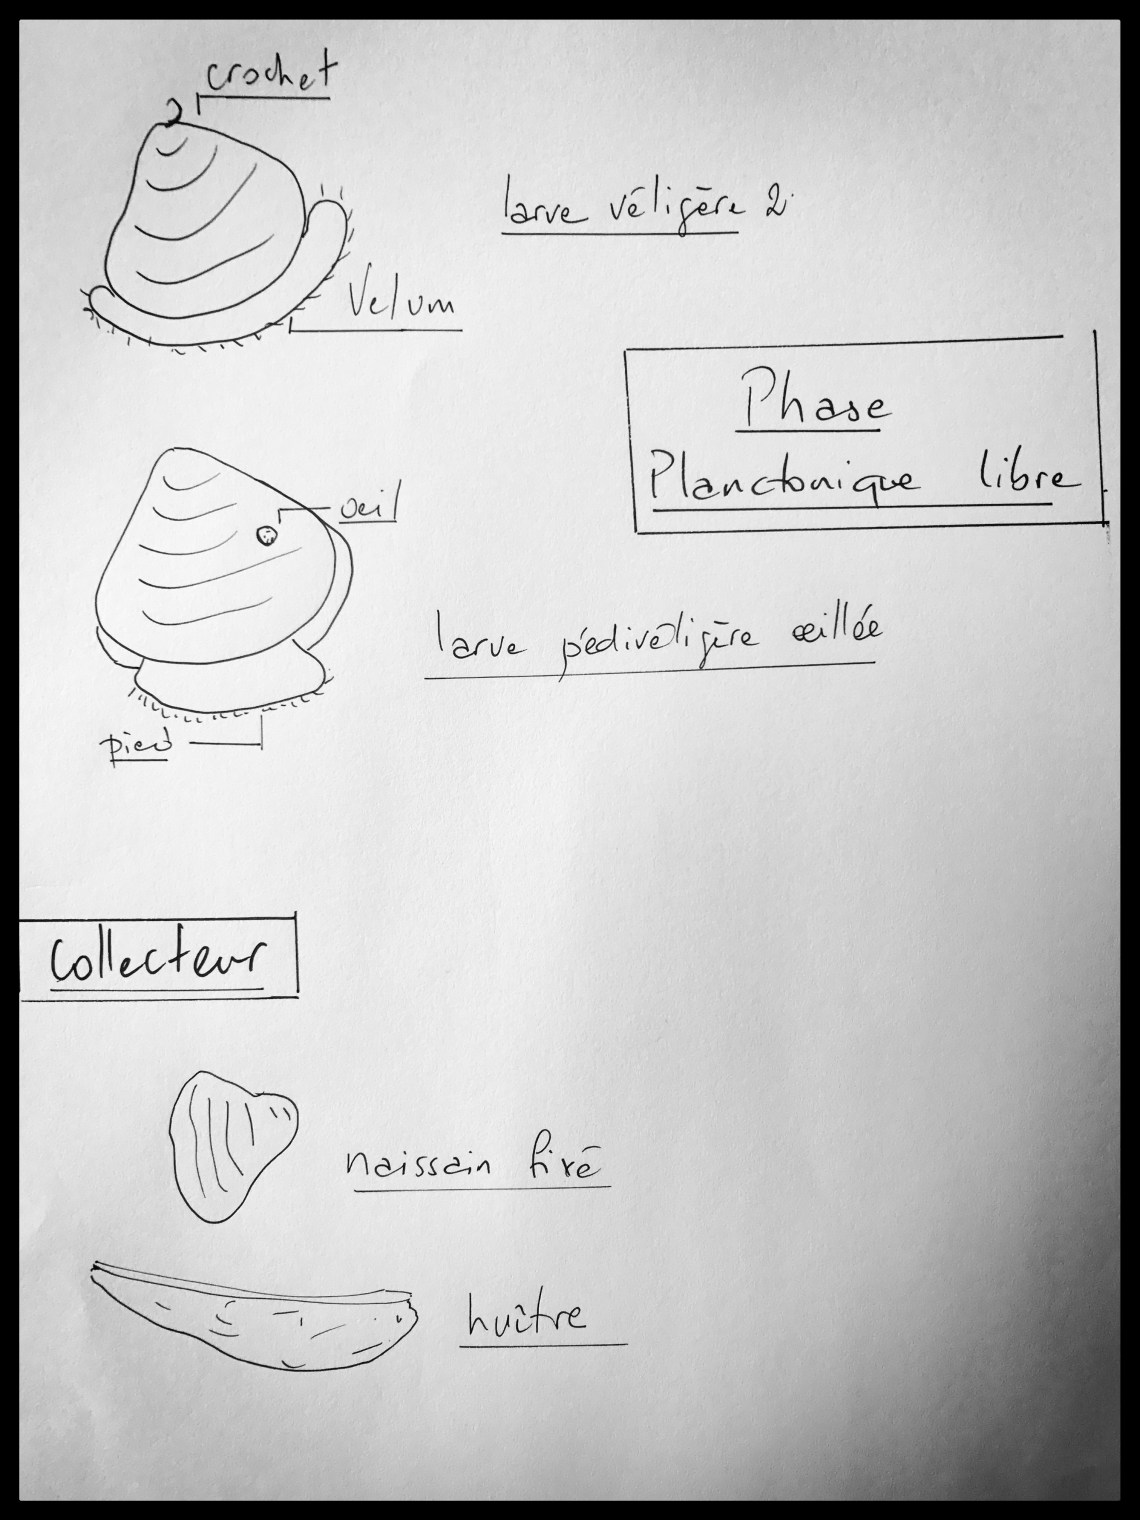 crochet
larve véligère 2
Velum
Phase
Planctonique libre
oeil
larve pédivéligère œillée
pied
Collecteur
naissain fixé
huître